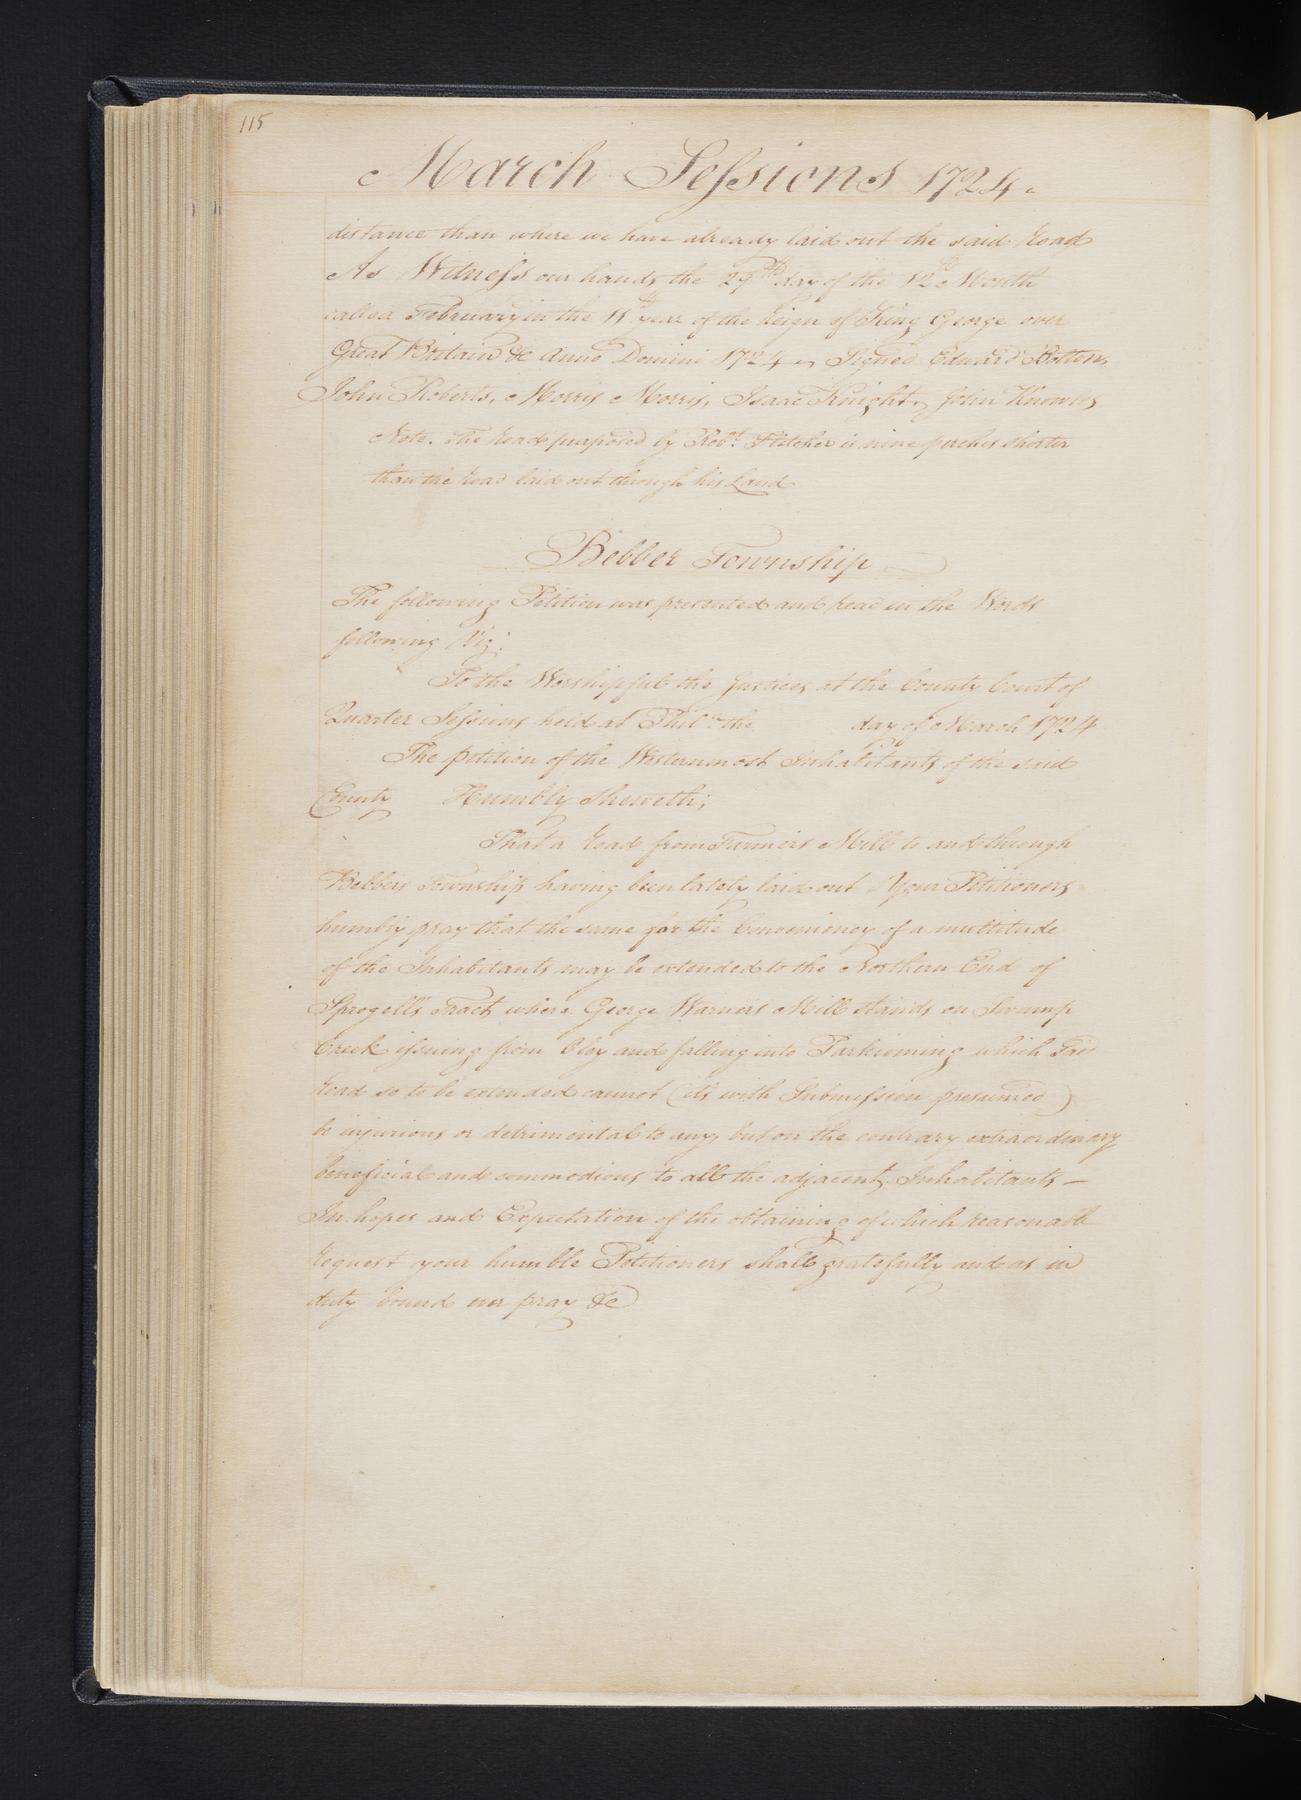 115
March Sessions 1724.
distance than where we have already laid out the said Road
As Witness our hands the 29th day of the 12th Month
called February in the 11th year of the Reign of King George over
Great Britain &c Anno Domini 1724 Signed Edward Bolton,
John Roberts, Morris Morris, Isaac Knight, John Knowles
Note. The Road purposed by Robt. Fletcher is nine perches shorter
than the Road laid out through his Land
Bebber Township
The following Petition was presented and read in the Words
following Viz.
To the Worshipful the Justices at the County Court of
Quarter Sessions held at Phila the day of March 1724
The petition of the Westernmost Inhabitants of the said
County Humbly Sheweth;
That a Road from Farmers Mill to and through
Bebbers Township having been lately laid out Your Petitioners
humbly pray that the same for the Conveniency of a multitude
of the Inhabitants may be extended to the Northern End of
Sprogell's Tract where George Warners Mill stands on Swamp
Creek issuing from Oley and falling into Parkieming which said
Road so to be extended cannot (its with Submission presumed)
be injurious or detrimental to any, but on the contrary extraordinary
beneficial and commodious to all the adjacent Inhabitants —
In hopes and Expectation of the obtaining of which reasonable
Request your humble Petitioners shall gratefully and as in
duty bound ever pray &c